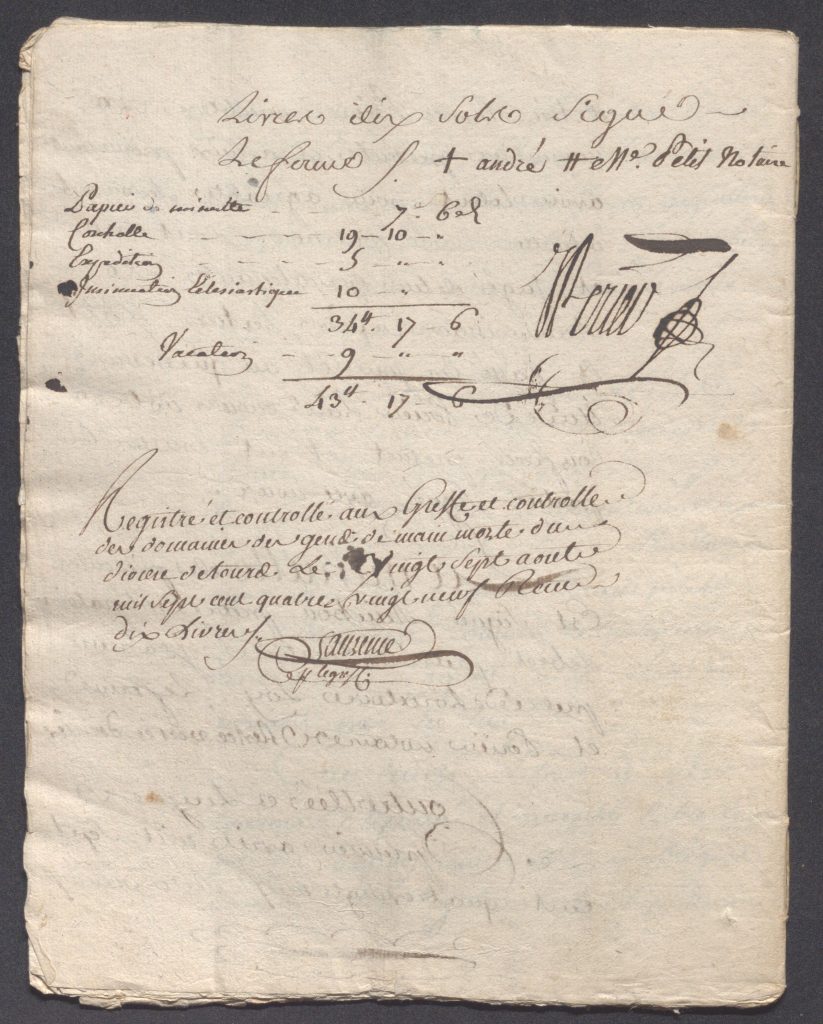 Livres dix Sols Signé
Leferme /. + andré # Me. Petit Notaire
Papier de minutte - - 7 " 6 d
Controlle - - - 19 - 10 - "
Expédition - - - 5 - " - "
Insinuation Eclesiastique 10 "
34tt. 17 6
Vacation - - 9 - " "
43tt. 17 6
Registré et controllé au Greffe et controlle
des domaines des gens de main morte du
diocese de tours Le Vingt Sept aout
mil Sept cent quatre Vingt neuf Recu
dix Livres /.